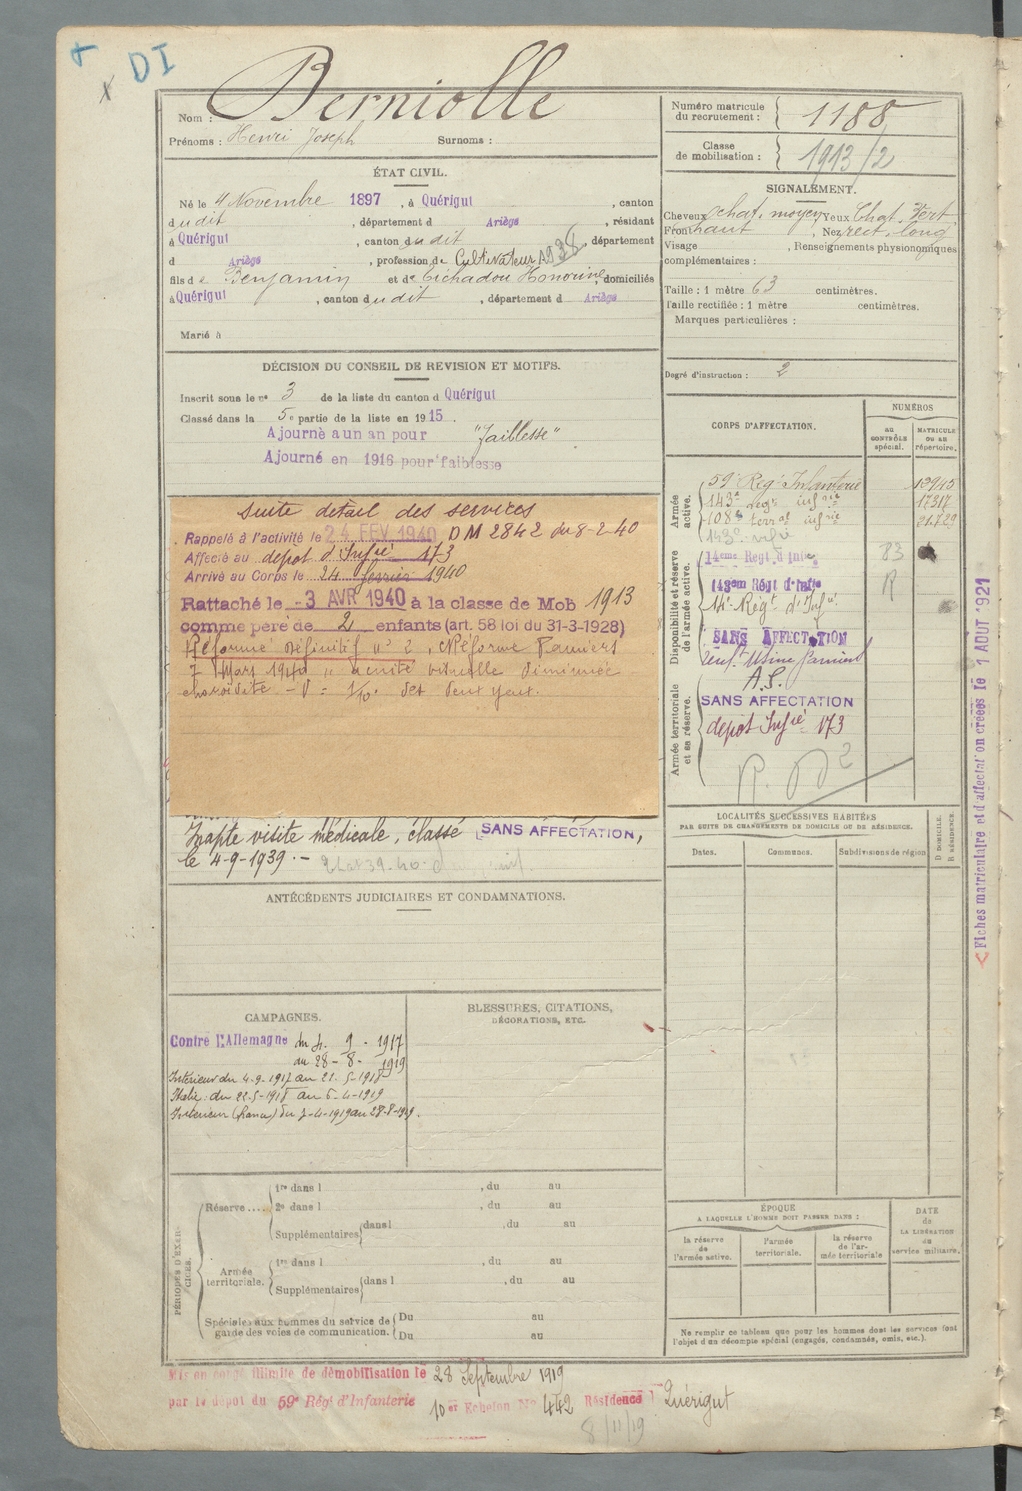 DI
Nom : Berniolle
Prénoms : Henri Joseph Surnoms :
Numéro matricule du recrutement : 1188
Classe de mobilisation : 1913/2
ÉTAT CIVIL.
Né le 4 Novembre 1897, à Quérigut, canton
dudit, département d Ariège, résidant
à Quérigut, canton dudit, département
d Ariège, profession de Cultivateur
fils de Benjamin et de Honorine, domiciliés
à Quérigut, canton dudit, département d Ariège
Marié à
SIGNALEMENT.
Cheveux chat. moyen Yeux Chat. Vert
Front haut, Nez rect. long
Visage , Renseignements physionomiques
complémentaires :
Taille : 1 mètre 63 centimètres.
Taille rectifiée : 1 mètre centimètres.
Marques particulières :
Degré d'instruction : 2
DÉCISION DU CONSEIL DE REVISION ET MOTIFS.
Inscrit sous le n° 3 de la liste du canton d Quérigut
Classé dans la 5e partie de la liste en 1915.
Ajourné a un an pour "faiblesse"
Ajourné en 1916 pour faiblesse
Suite détail des services
Rappelé à l'activité le 24 FEV 1940 DM 2842 du 8-2-40
Affecté au depot d'Infie 173
Arrivé au Corps le 24 fevrier 1940
Rattaché le -3 AVR 1940 à la classe de Mob 1913
comme père de 2 enfants (art. 58 loi du 31-3-1928)
Réformé définitif n° 2, Réforme Pamiers
7 Mars 1940 "acuité visuelle diminuée
choroïdite - V = 1/10. des deux yeux.
Inapte visite médicale, classé SANS AFFECTATION,
le 4-9-1939. -
CORPS D'AFFECTATION.
NUMÉROS
AU CONTRÔLE spécial.
MATRICULE OU AU répertoire.
Armée active.
59e Rég. Infanterie
143e regt infrie 17317
108e terral infrie 21.729
143e
Disponibilité et réserve de l'armée active.
14eme Regt d'Infie 83
143em Régt d'Infie R
14e Régt d'Infie
SANS AFFECTATION
Usine Pamiers
A.S.
Armée territoriale et sa réserve.
SANS AFFECTATION
depot Infie 173
R. D 2
Fiches matriculaire et d'affectation créées le 1 AOUT 1921
LOCALITÉS SUCCESSIVES HABITÉES
PAR SUITE DE CHANGEMENTS DE DOMICILE OU DE RÉSIDENCE.
Dates. Communes. Subdivisions de région
D DOMICILE. R RÉSIDENCE.
ANTÉCÉDENTS JUDICIAIRES ET CONDAMNATIONS.
CAMPAGNES.
Contre l'Allemagne du 4. 9 - 1917
au 28-8-1919
Intérieur du 4-9-1917 au 21-5-1918
Italie : du 22-5-1918 au 6-4-1919
Intérieur (France) du 7-4-1919 au 28-8-1919.
BLESSURES, CITATIONS,
DÉCORATIONS, ETC.
PÉRIODES D'EXERCICES.
Réserve....
1re dans l , du au
2e dans l , du au
Supplémentaires dans l , du au
Armée territoriale.
1re dans l , du au
Supplémentaires dans l , du au
Spéciales aux hommes du service de garde des voies de communication.
Du au
Du au
ÉPOQUE
A LAQUELLE L'HOMME DOIT PASSER DANS :
la réserve de l'armée active.
l'armée territoriale.
la réserve de l'armée territoriale
DATE de LA LIBÉRATION du service militaire.
Ne remplir ce tableau que pour les hommes dont les services font
l'objet d'un décompte spécial (engagés, condamnés, omis, etc.).
Mis en congé illimité de démobilisation le 28 Septembre 1919
par le dépôt du 59e Régt d'Infanterie 10er Echelon N° 442 Résidence Quérigut
8/11/19